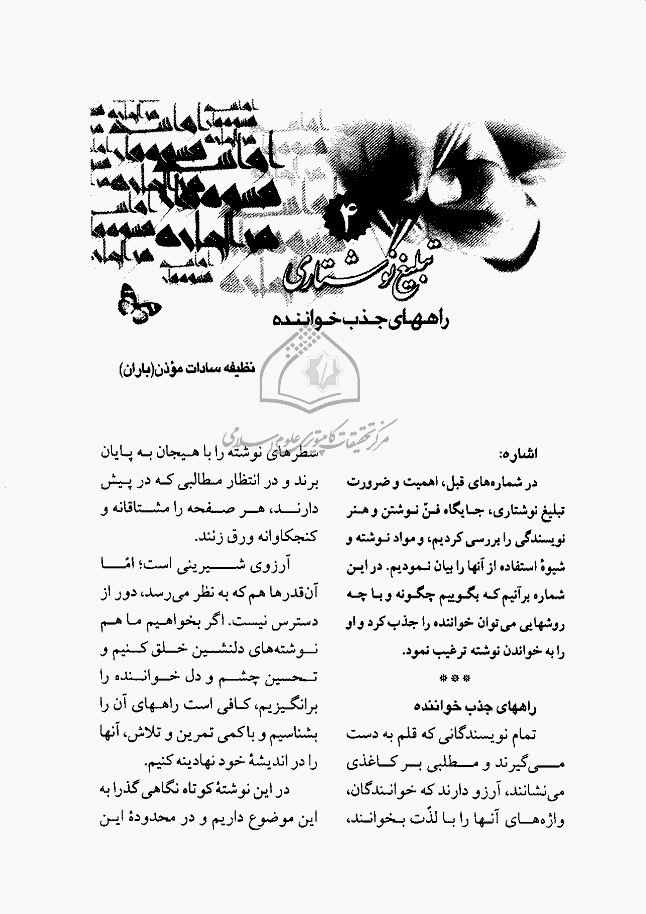 ۴
تبلیغ نوشتاری
راههای جذب خواننده
نظیفه سادات مؤذن(باران)
مرکز تحقیقات کامپیوتری علوم اسلامی
اشاره:
در شماره‌های قبل، اهمیت و ضرورت
تبلیغ نوشتاری، جایگاه فنّ نوشتن و هنر
نویسندگی را بررسی کردیم، و مواد نوشته و
شیوهٔ استفاده از آنها را بیان نمودیم. در این
شماره برآنیم که بگوییم چگونه و با چه
روشهایی می‌توان خواننده را جذب کرد و او
را به خواندن نوشته ترغیب نمود.
***
راههای جذب خواننده
تمام نویسندگانی که قلم به دست
می‌گیرند و مطلبی بر کاغذی
می‌نشانند، آرزو دارند که خوانندگان،
واژه‌های آنها را با لذّت بخوانند،
سطرهای نوشته را با هیجان به پایان
برند و در انتظار مطالبی که در پیش
دارند، هر صفحه را مشتاقانه و
کنجکاوانه ورق زنند.
آرزوی شیرینی است؛ امّا
آن‌قدرها هم که به نظر می‌رسد، دور از
دسترس نیست. اگر بخواهیم ما هم
نوشته‌های دلنشین خلق کنیم و
تحسین چشم و دل خواننده را
برانگیزیم، کافی است راههای آن را
بشناسیم و با کمی تمرین و تلاش، آنها
را در اندیشهٔ خود نهادینه کنیم.
در این نوشتهٔ کوتاه نگاهی گذرا به
این موضوع داریم و در محدودهٔ این